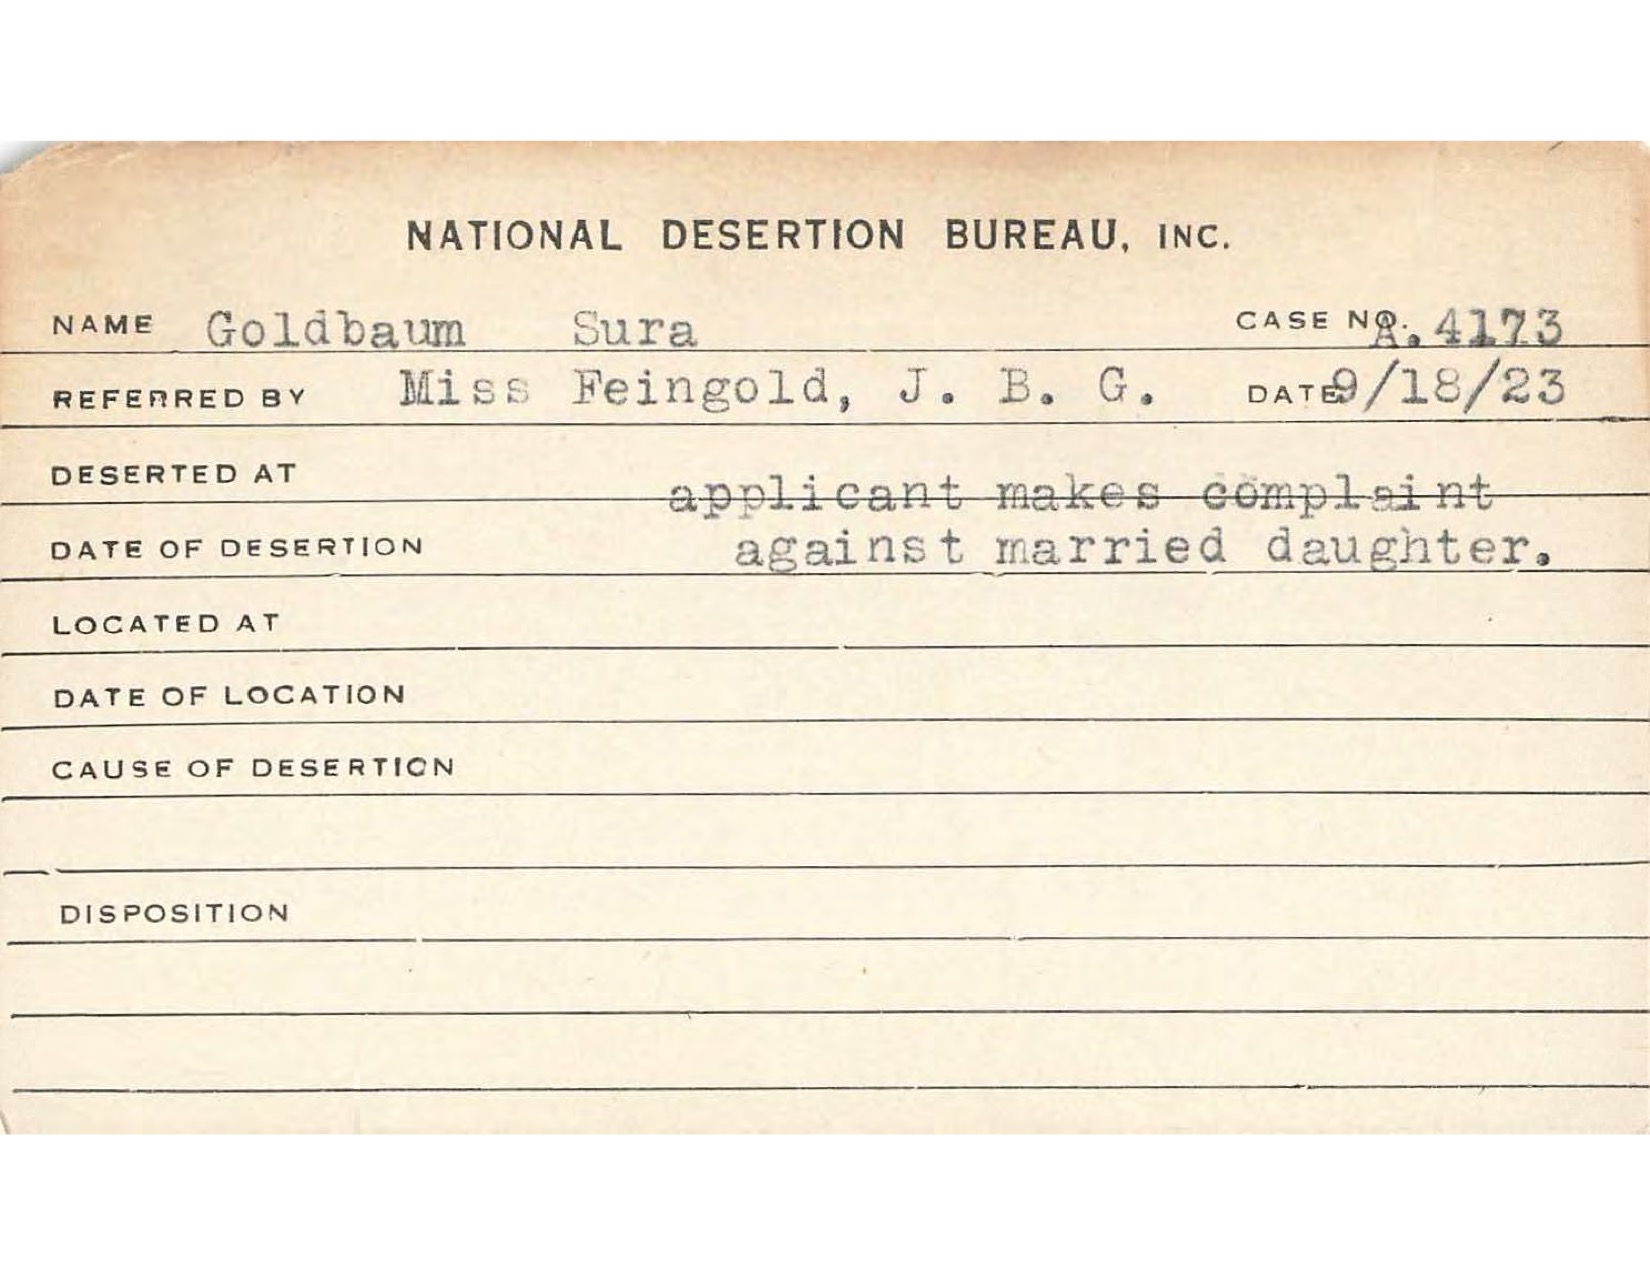 NATIONAL DESERTION BUREAU, INC.
NAME Goldbaum Sura CASE NO. A.4173
REFERRED BY Miss Feingold, J. B. G. DATE 9/18/23
DESERTED AT applicant makes complaint
DATE OF DESERTION against married daughter.
LOCATED AT
DATE OF LOCATION
CAUSE OF DESERTION
DISPOSITION